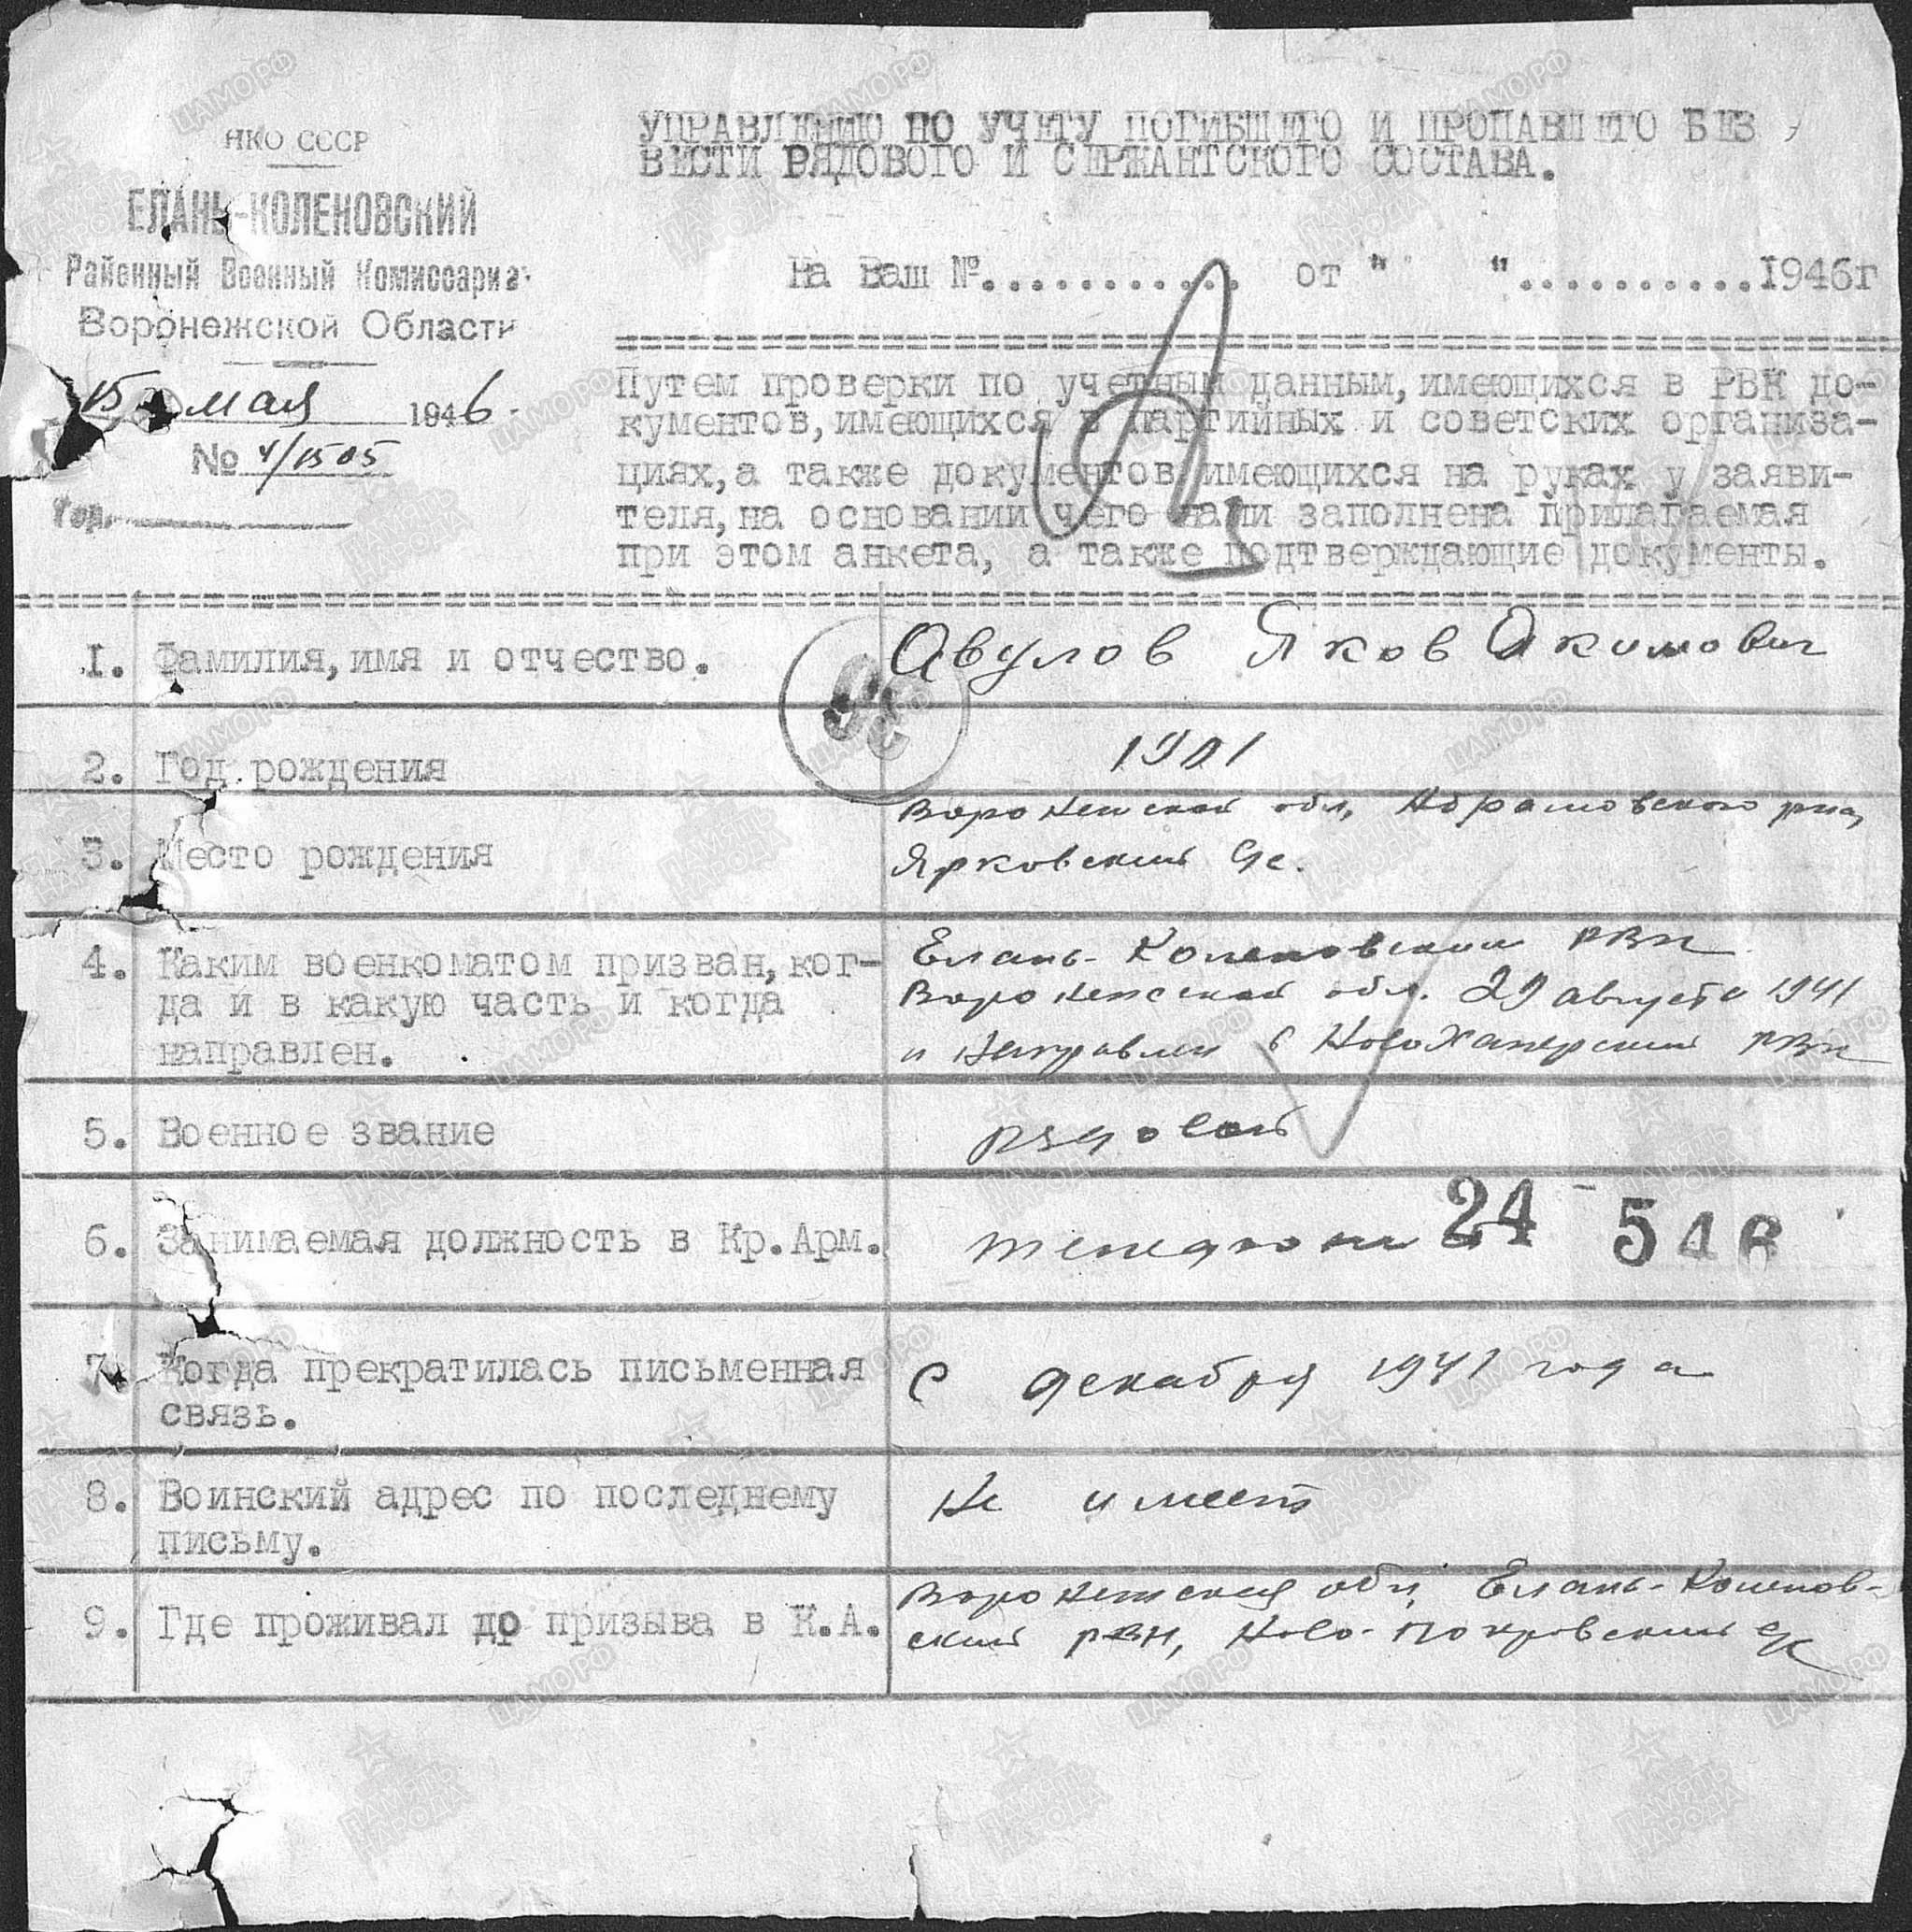 НКО СССР
ЕЛАНЬ-КОЛЕНОВСКИЙ
Районный Военный Комиссариат
Воронежской Области
15 мая 1946.
№ 4/1505
Гор.
УПРАВЛЕНИЮ ПО УЧЕТУ ПОГИБШЕГО И ПРОПАВШЕГО БЕЗ
ВЕСТИ РЯДОВОГО И СЕРЖАНТСКОГО СОСТАВА.
На Ваш №............ от " "...........1946г
Путем проверки по учетным данным,имеющихся в РВК до-
кументов,имеющихся в партийных и советских организа-
циях,а также документов имеющихся на руках у заяви-
теля,на основании чего нами заполнена прилагаемая
при этом анкета, а также подтверждающие документы.
1. Фамилия,имя и отчество. Авулов Яков Якимович
2. Год рождения 1901
3. Место рождения Воронежской обл, Абрамовского рна,
Ярковский с/с.
4. Каким военкоматом призван,ког-
да и в какую часть и когда
направлен.
Елань-Коленовским РВК
Воронежской обл. 29 августа 1941
и направлен в Новохоперский РВК
5. Военное звание рядовой
6. Занимаемая должность в Кр.Арм.
24 546
7. Когда прекратилась письменная
связь.
С декабря 1941 года
8. Воинский адрес по последнему
письму.
Не имеет
9. Где проживал до призыва в К.А.
Воронежская обл, Елань-Коленов-
ский рвн, Ново-Покровский с/с
ПАМЯТЬ НАРОДА
ЦАМО.РФ